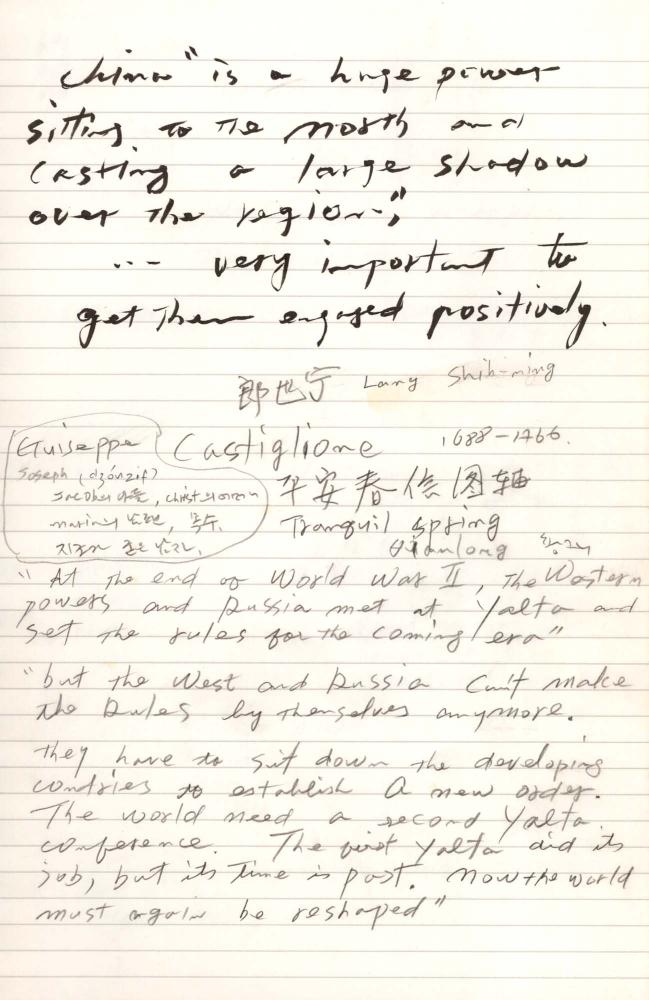 China" is a huge power
sitting to the north and
casting a large shadow
over the region,"
... very important to
get them engaged positively.
郎世宁 Lang Shih-ming
Guiseppe Castiglione 1688-1766.
Joseph (dʒóuzif)
Jacob의 아들, Christ의
maria의 남편, 목수.
平安春信图轴
Tranquil Spring
Qianlong
"At the end of World War II, the Western
powers and Russia met at Yalta and
set the rules for the coming era"
"but the West and Russia can't make
the Rules by themselves anymore.
they have to sit down the developing
contries to establish A new order.
The world need a second Yalta
conference. The first Yalta did its
job, but its time is past. Now the world
must again be reshaped"